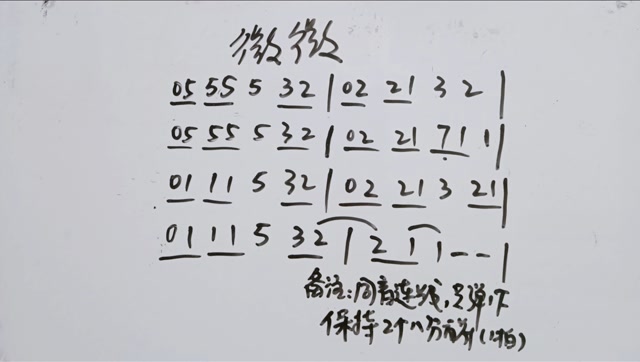 微微
05 55 5 32 | 02 21 3 2 |
05 55 5 32 | 02 21 71 1 |
01 11 5 32 | 02 21 3 21 |
01 11 5 32 | 21 1 - - |
备注:同音连线,只弹1下
保持2个八分音符(1拍)